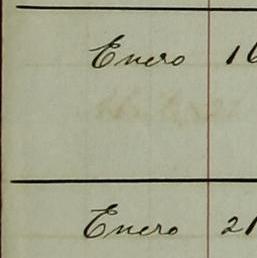 Enero 16
Enero 21